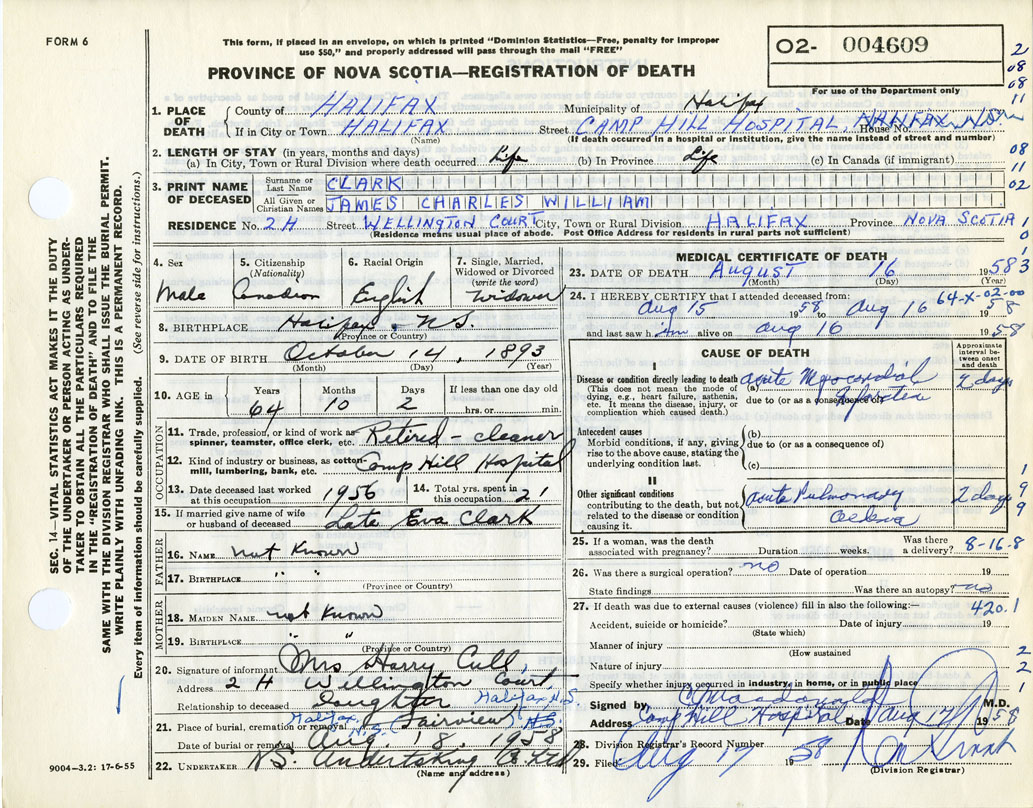 FORM 6
This form, if placed in an envelope, on which is printed "Dominion Statistics—Free, penalty for improper
use $50," and properly addressed will pass through the mail "FREE"
PROVINCE OF NOVA SCOTIA—REGISTRATION OF DEATH
02- 004609
For use of the Department only
2
08
08
11
1. PLACE OF DEATH
County of HALIFAX Municipality of Halifax
If in City or Town HALIFAX Street CAMP HILL HOSPITAL, HALIFAX, N.S. House No.
(Name) (If death occurred in a hospital or institution, give the name instead of street and number)
2. LENGTH OF STAY (in years, months and days)
(a) In City, Town or Rural Division where death occurred Life (b) In Province Life (c) In Canada (if immigrant)
08
11
02
3. PRINT NAME OF DECEASED
Surname or Last Name CLARK
All Given or Christian Names JAMES CHARLES WILLIAM
RESIDENCE No. 2 H Street WELLINGTON COURT City, Town or Rural Division HALIFAX Province NOVA SCOTIA
(Residence means usual place of abode. Post Office Address for residents in rural parts not sufficient)
1
0
SEC. 14—VITAL STATISTICS ACT MAKES IT THE DUTY
OF THE UNDERTAKER OR PERSON ACTING AS UNDER-
TAKER TO OBTAIN ALL THE PARTICULARS REQUIRED
IN THE "REGISTRATION OF DEATH" AND TO FILE THE
SAME WITH THE DIVISION REGISTRAR WHO SHALL ISSUE THE BURIAL PERMIT.
WRITE PLAINLY WITH UNFADING INK. THIS IS A PERMANENT RECORD.
Every item of information should be carefully supplied. (See reverse side for instructions.)
4. Sex Male
5. Citizenship (Nationality) Canadian
6. Racial Origin English
7. Single, Married, Widowed or Divorced (write the word) Widower
8. BIRTHPLACE Halifax, N.S.
(Province or Country)
9. DATE OF BIRTH October 14, 1893
(Month) (Day) (Year)
10. AGE in Years 64 Months 10 Days 2 If less than one day old hrs. or min.
OCCUPATION
11. Trade, profession, or kind of work as spinner, teamster, office clerk, etc. Retired - cleaner
12. Kind of industry or business, as cotton-mill, lumbering, bank, etc. Camp Hill Hospital
13. Date deceased last worked at this occupation 1956
14. Total yrs. spent in this occupation 21
15. If married give name of wife or husband of deceased Late Eva Clark
FATHER
16. NAME not known
17. BIRTHPLACE " "
(Province or Country)
MOTHER
18. MAIDEN NAME not known
19. BIRTHPLACE " "
(Province or Country)
20. Signature of informant Mrs Harry Cull,
Address 2 H Wellington Court
Relationship to deceased Daughter Halifax, N.S.
21. Place of burial, cremation or removal Halifax, N.S. Fairview N.S.
Date of burial or removal Aug. 18, 1958
22. UNDERTAKER N.S. Undertaking Co. Ltd
(Name and address)
9004—3.2: 17-6-55
MEDICAL CERTIFICATE OF DEATH
23. DATE OF DEATH August 16 1958 3
(Month) (Day) (Year)
24. I HEREBY CERTIFY that I attended deceased from: 64-X-02-00
Aug 15 1958 to Aug 16 1958
and last saw him alive on Aug 16 1958
CAUSE OF DEATH
Approximate interval between onset and death
I
Disease or condition directly leading to death (a) Acute Myocardial Infarction 2 days
(This does not mean the mode of dying, e.g., heart failure, asthenia, etc. It means the disease, injury, or complication which caused death.)
due to (or as a consequence of)
Antecedent causes
Morbid conditions, if any, giving rise to the above cause, stating the underlying condition last.
(b)
due to (or as a consequence of)
(c)
II
Other significant conditions contributing to the death, but not related to the disease or condition causing it.
Acute Pulmonary Oedema 2 days
1
9
9
25. If a woman, was the death associated with pregnancy? Duration weeks. Was there a delivery? 8-16-8
26. Was there a surgical operation? no Date of operation 19
State findings Was there an autopsy? no
27. If death was due to external causes (violence) fill in also the following:— 420.1
Accident, suicide or homicide? Date of injury 19
(State which)
Manner of injury 2
(How sustained
Nature of injury 2
Specify whether injury occurred in industry, in home, or in public place 1
Signed by C Macdonald M.D.
Address Camp Hill Hospital Date Aug 17 1958
28. Division Registrar's Record Number
29. Filed Aug 17 1958
(Division Registrar)